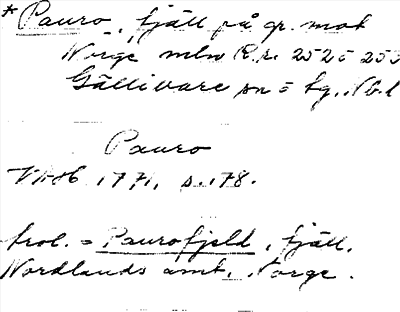 *Pauro, fjäll på gr. mot
Norge mln R.r. 252 o 253
Gällivare sn = tg., Nb.l
Pauro
VAH 1771, s. 178.
trol. = Paurofjeld, fjäll,
Nordlands amt, Norge.